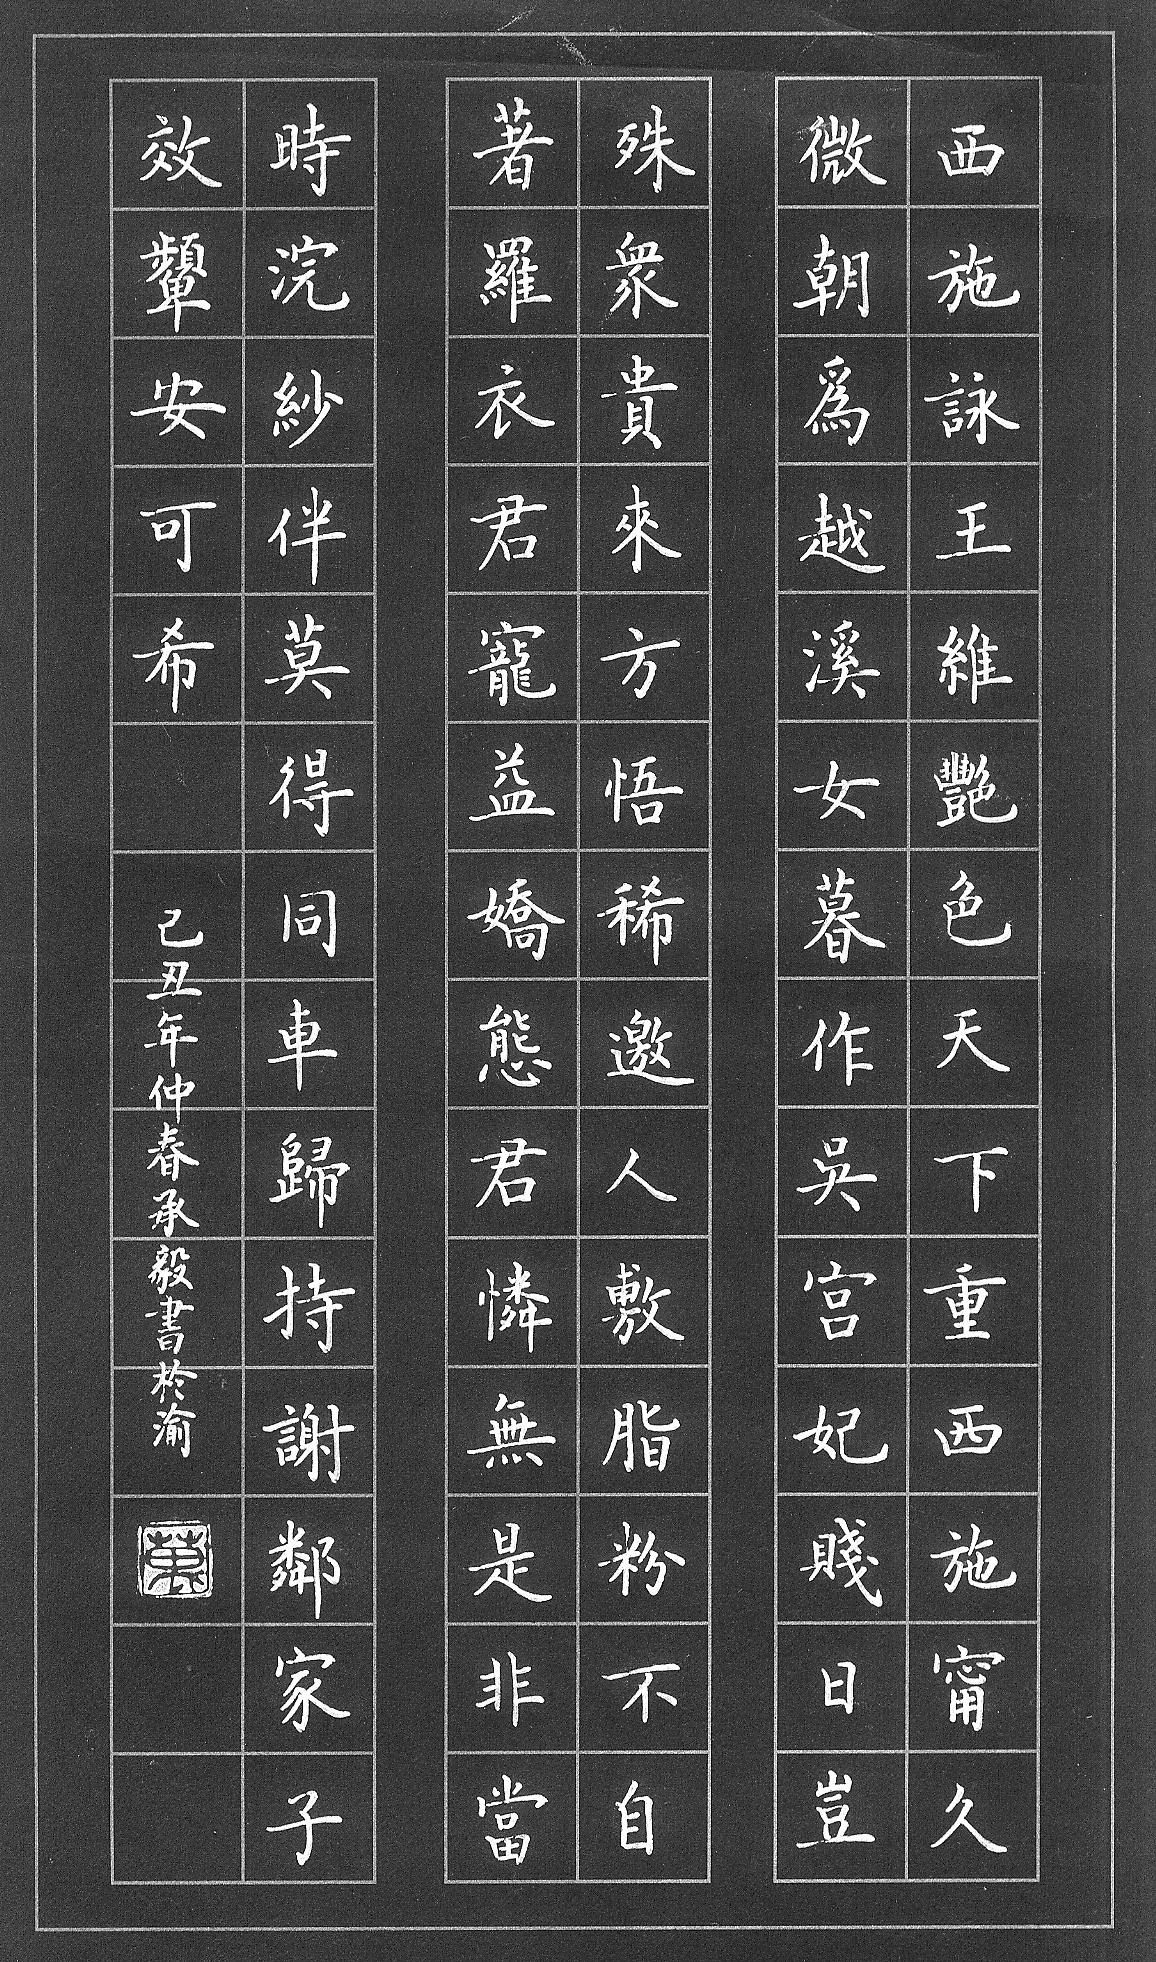 西施詠王維艷色天下重西施甯久
微朝爲越溪女暮作吳宮妃賤日豈
殊衆貴來方悟稀邀人敷脂粉不自
著羅衣君寵益嬌態君憐無是非當
時浣紗伴莫得同車歸持謝鄰家子
效顰安可希
己丑年仲春承毅書於渝